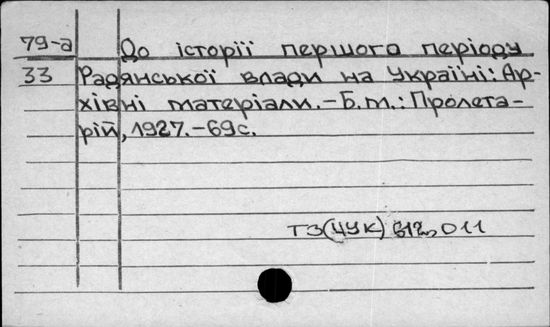 79-а До історії першого періоду
33 Радянської влади на Україні: Ар-
хівні матеріали.-Б.м.: Пролета-
рій, 1927.-69с.
Т3(4УК) 612,011